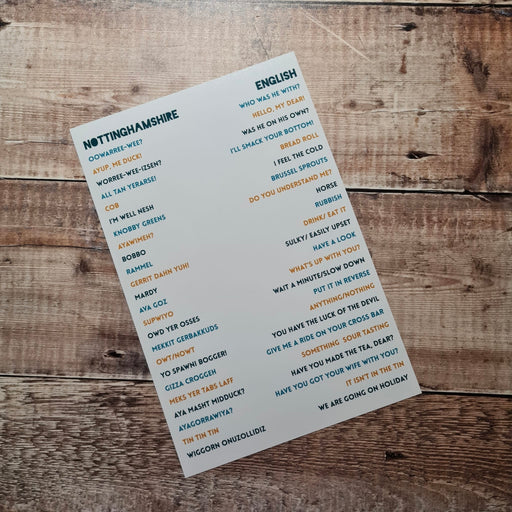 NOTTINGHAMSHIRE
OOWARREE-WEE?
AYUP, ME DUCK!
WORREE-WEE-IZSEN?
ALL TAN YERARSE!
COB
I'M WELL NESH
KNOBBY GREENS
AYAWIMEH?
BOBBO
RAMMEL
GERRIT DAHN YUH!
MARDY
AVA GOZ
SUPWIYO
OWD YER OSSES
MEKKIT GERBAKKUDS
OWT/NOWT
YO SPAWNI BOGGER!
GIZZA CROGGEH
MEKS YER TABS LAFF
AYA MASHT MIDDUCK?
AYAGORRAWIYA?
TIN TIN TIN
WIGGORN ONUZOLLIDIZ
ENGLISH
WHO WAS HE WITH?
HELLO, MY DEAR!
WAS HE ON HIS OWN?
I'LL SMACK YOUR BOTTOM!
BREAD ROLL
I FEEL THE COLD
BRUSSEL SPROUTS
DO YOU UNDERSTAND ME?
HORSE
RUBBISH
DRINK/ EAT IT
SULKY/ EASILY UPSET
HAVE A LOOK
WHAT'S UP WITH YOU?
WAIT A MINUTE/SLOW DOWN
PUT IT IN REVERSE
ANYTHING/NOTHING
YOU HAVE THE LUCK OF THE DEVIL
GIVE ME A RIDE ON YOUR CROSS BAR
SOMETHING SOUR TASTING
HAVE YOU MADE THE TEA, DEAR?
HAVE YOU GOT YOUR WIFE WITH YOU?
IT ISN'T IN THE TIN
WE ARE GOING ON HOLIDAY